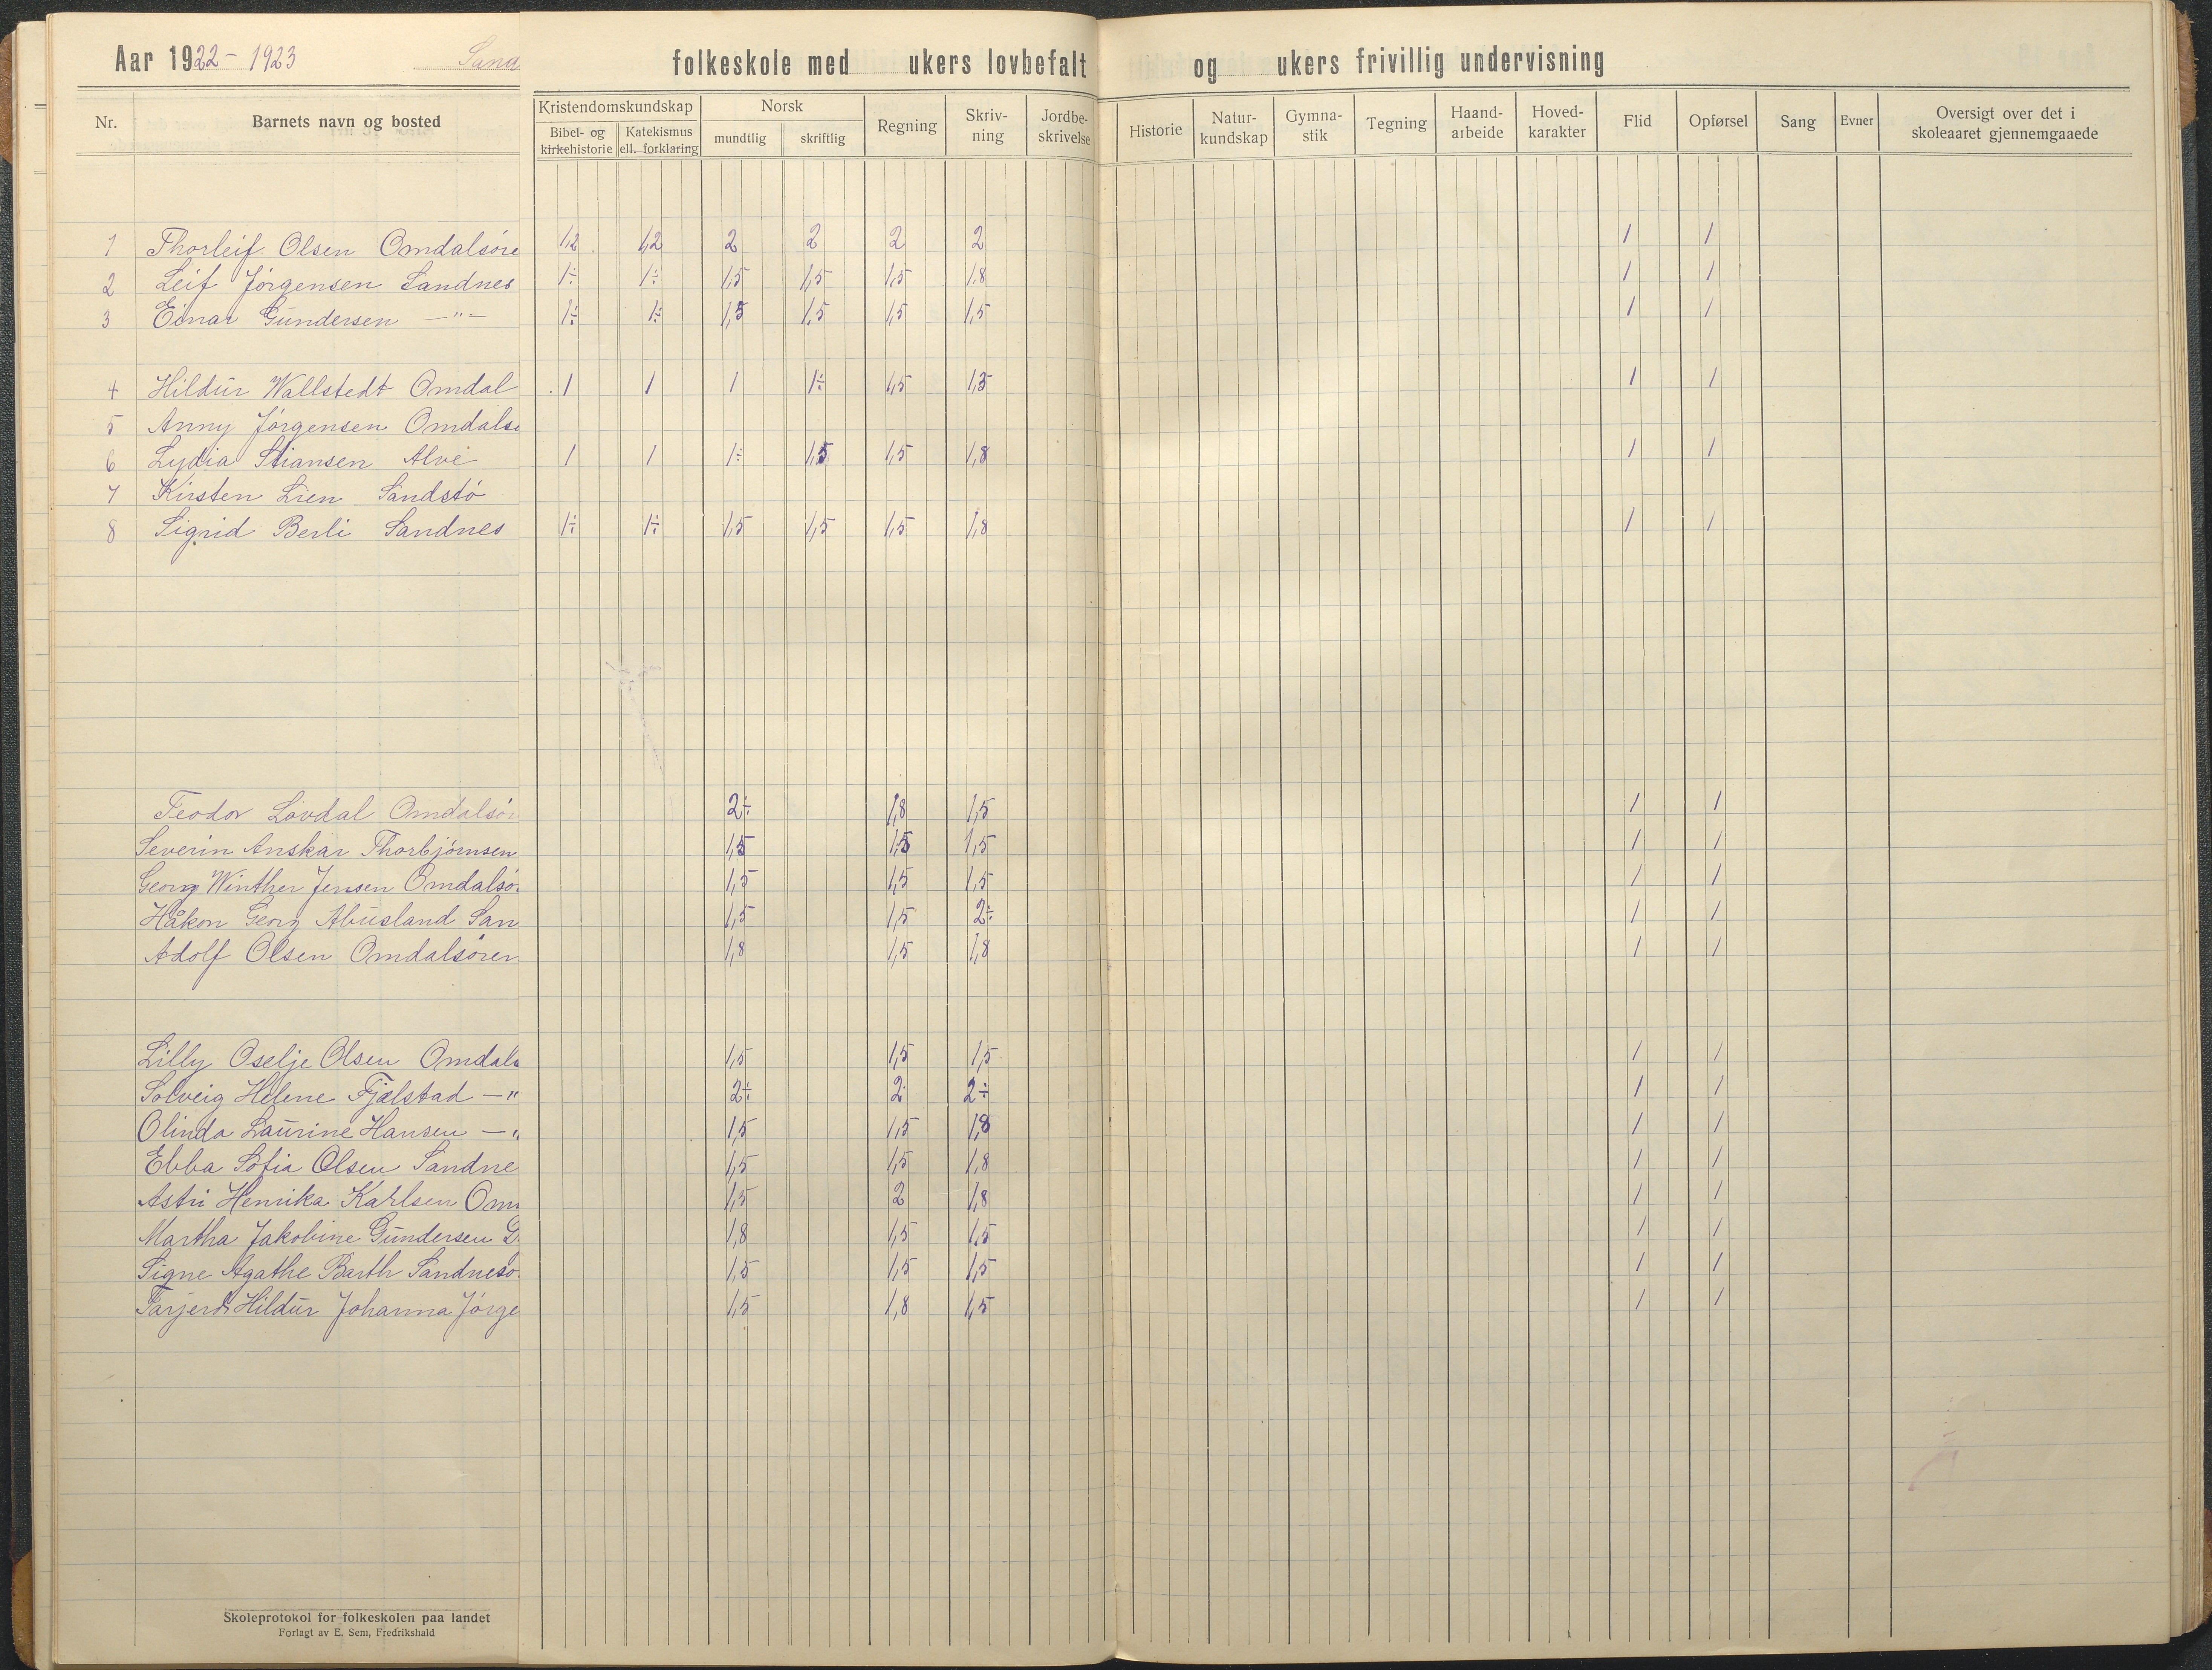 Aar 1922 - 1923 Sand folkeskole med ukers lovbefalt og ukers frivillig undervisning
Nr. Barnets navn og bosted Kristendomskundskap Bibel- og kirkehistorie Katekismus ell. forklaring Norsk mundtlig skriftlig Regning Skriv-ning Jordbe-skrivelse Historie Natur-kundskap Gymna-stik Tegning Haand-arbeide Hoved-karakter Flid Opførsel Sang Evner Oversigt over det i skoleaaret gjennemgaaede
1 Thorleif Olsen Omdalsöre 1,2 1,2 2 2 2 2 1 1
2 Leif Jörgensen Sandnes 1÷ 1÷ 1,5 1,5 1,5 1,8 1 1
3 Einar Gundersen —"— 1÷ 1÷ 1,5 1,5 1,5 1,5 1 1
4 Hildur Wallstedt Omdal 1 1 1 1÷ 1,5 1,5 1 1
5 Anny Jörgensen Omdalsö
6 Lydia Stiansen Alve 1 1 1÷ 1,5 1,5 1,8 1 1
7 Kirsten Lien Sandstö
8 Sigrid Berli Sandnes 1÷ 1÷ 1,5 1,5 1,5 1,8 1 1
Teodor Lövdal Omdalsör 2÷ 1,8 1,5 1 1
Severin Anskar Thorbjörnsen 1,5 1,5 1,5 1 1
Georg Winther Jensen Omdalsö 1,5 1,5 1,5 1 1
Håkon Georg Abusland San 1,5 1,5 2÷ 1 1
Adolf Olsen Omdalsören 1,8 1,5 1,8 1 1
Lilly Oselje Olsen Omdals 1,5 1,5 1,5 1 1
Solveig Helene Fjælstad —" 2÷ 2 2÷ 1 1
Olinda Laurine Hansen —" 1,5 1,5 1,8 1 1
Ebba Sofia Olsen Sandne 1,5 1,5 1,8 1 1
Astri Henrika Karlsen Om 1,5 2 1,8 1 1
Martha Jakobine Gundersen 1,8 1,5 1,5 1 1
Signe Agathe Barth Sandnesö 1,5 1,5 1,5 1 1
Tarjerd Hildur Johanna Jörge 1,5 1,8 1,5 1 1
Skoleprotokol for folkeskolen paa landet
Forlagt av E. Sem, Fredrikshald